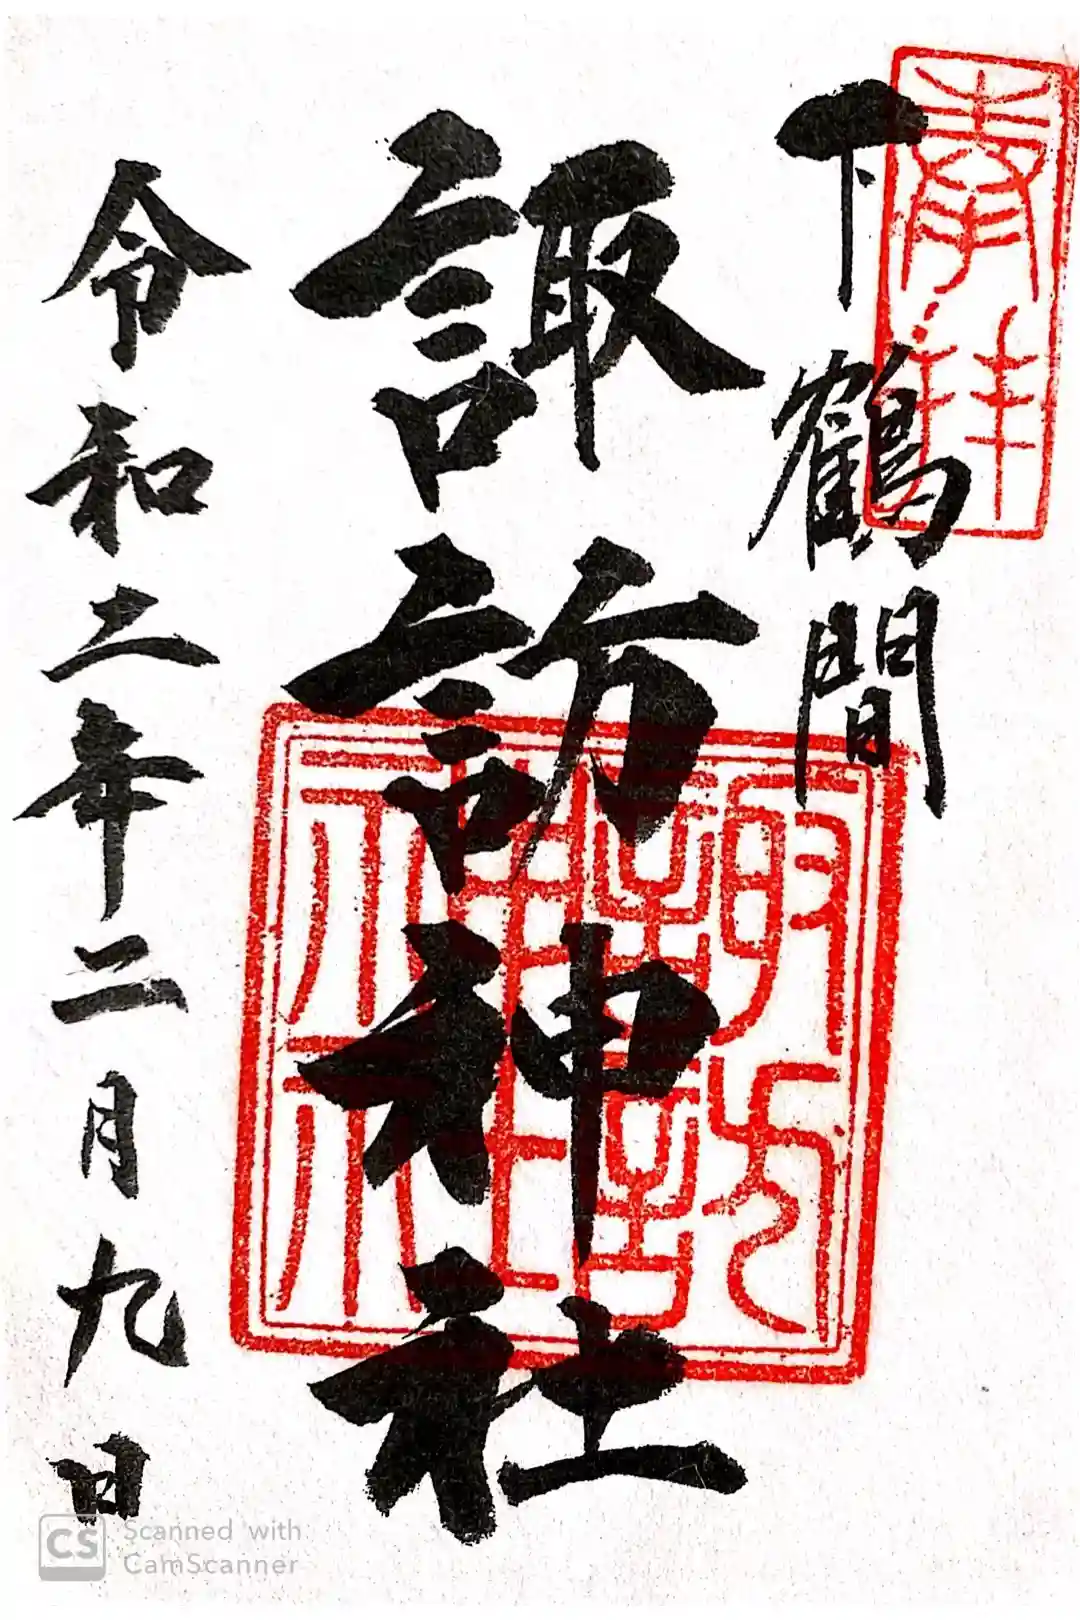 奉拝
下鶴間
諏訪神社
諏訪神社
令和二年二月九日
CS Scanned with
CamScanner